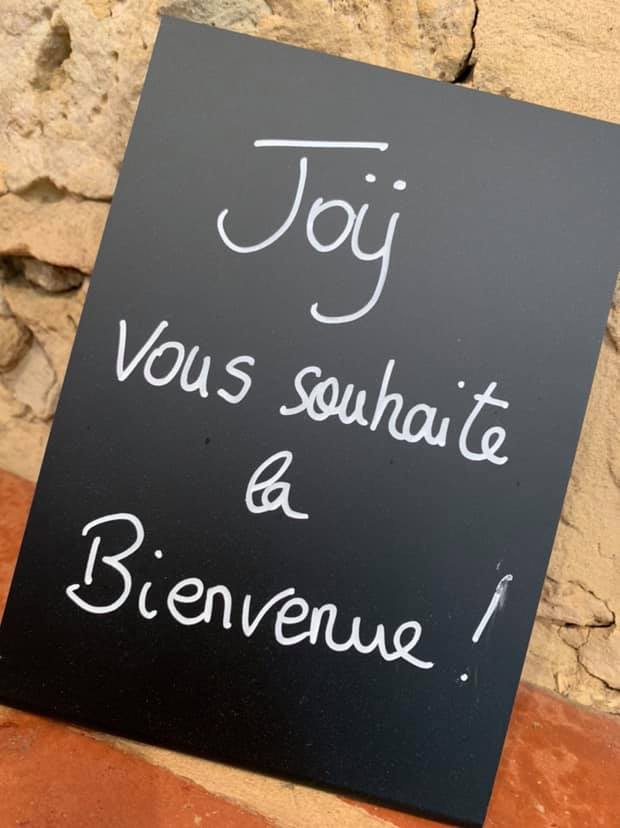 Joÿ
Vous souhaite
la
Bienvenue !